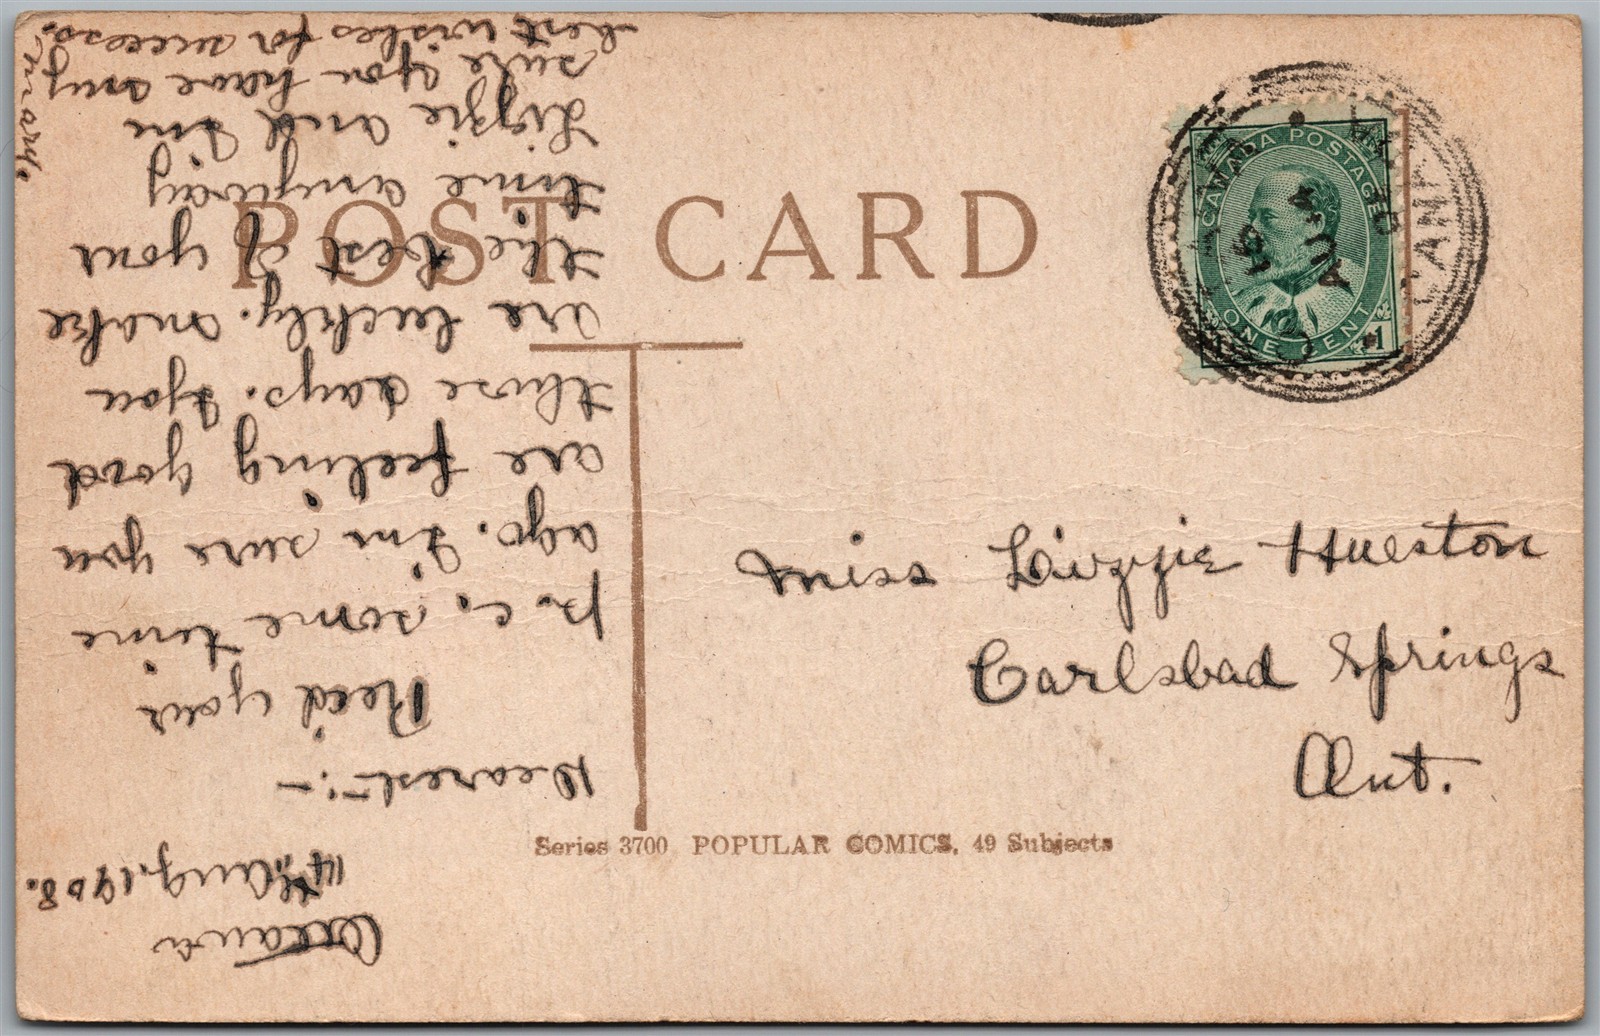 POST CARD
CANADA POSTAGE
ONE CENT
1
15
AU 14
08
Ottawa
14th Aug. 1908.
Dearest:-
Rec'd your
p.c. some time
ago. I'm sure you
are feeling good
these days. You
are lucky. make
the best of your
time anyway
Lizzie and I'm
sure you have my
best wishes for success.
Mary.
Miss Lizzie Hueston
Carlsbad Springs
Ont.
Series 3700 POPULAR COMICS, 49 Subjects